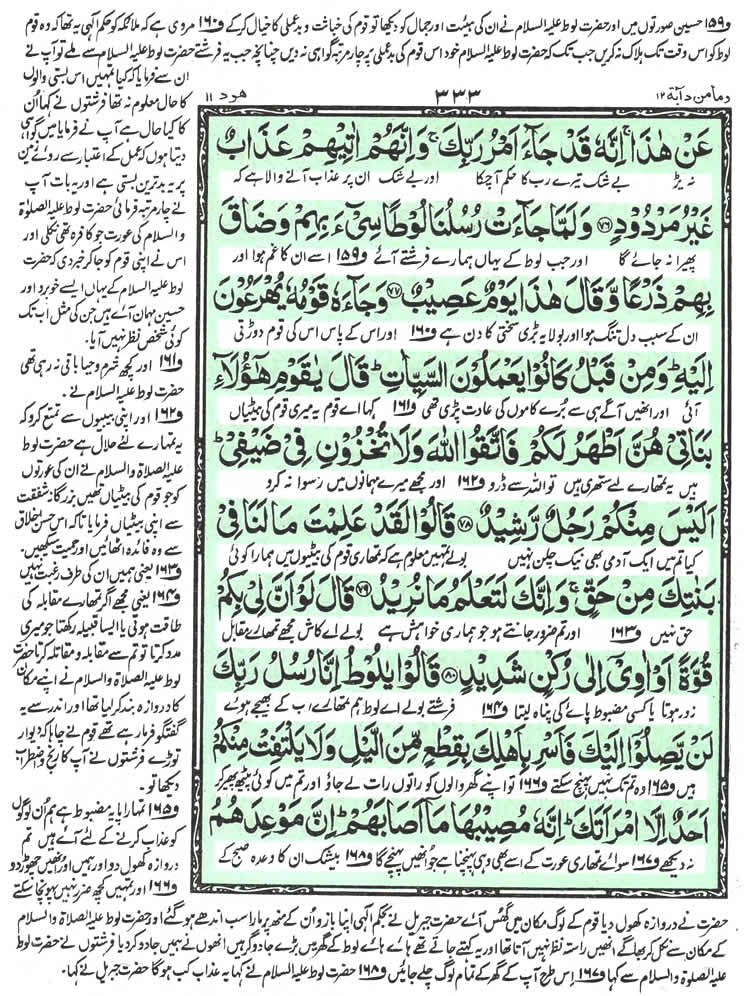 و۱۵۹ حسین صورتوں میں اور حضرت لوط علیہ السلام نے ان کی ہیئت اور جمال کو دیکھا تو قوم کی خباثت و بدعملی کا خیال کرکے و۱۶۰ مروی ہے کہ ملائکہ کو حکم الٰہی یہ تھا کہ وہ قوم
لوط کو اس وقت تک ہلاک نہ کریں جب تک کہ حضرت لوط علیہ السلام خود اس قوم کی بدعملی پر چار مرتبہ گواہی نہ دیں چنانچہ جب یہ فرشتے حضرت لوط علیہ السلام سے ملے تو آپ نے
ان سے فرمایا کہ کیا تمہیں اس بستی والوں
کا حال معلوم نہ تھا فرشتوں نے کہا اُن
کا کیا حال ہے آپ نے فرمایا میں گواہی
دیتا ہوں کہ عمل کے اعتبار سے روئے زمین
پر یہ بدترین بستی ہے اور یہ بات آپ
نے چار مرتبہ فرمائی حضرت لوط علیہ الصلوۃ
و السلام کی عورت جو کافرہ تھی نکلی اور
اس نے اپنی قوم کو جا کر خبر دی کہ حضرت
لوط علیہ السلام کے یہاں ایسے خوبرو اور
حسین مہمان آئے ہیں جن کی مثل اب تک
کوئی شخص نظر نہیں آیا.
و۱۶۱ اور کچھ شرم و حیا باقی نہ رہی تھی
حضرت لوط علیہ السلام نے.
و۱۶۲ اور اپنی بیبیوں سے تمتع کرو کہ
یہ تمہارے لئے حلال ہے حضرت لوط
علیہ الصلاۃ والسلام نے ان کی عورتوں
کو جو قوم کی بیٹیاں تھیں بزرگانہ شفقت
سے اپنی بیٹیاں فرمایا تاکہ اس حسن اخلاق
سے وہ فائدہ اٹھائیں اور حمیت سیکھیں.
و۱۶۳ یعنی ہمیں ان کی طرف رغبت نہیں
و۱۶۴ یعنی مجھے اگر تمہارے مقابلہ کی
طاقت ہوتی یا ایسا قبیلہ رکھتا جو میری
مدد کرتا تو تم سے مقابلہ و مقاتلہ کرتا حضرت
لوط علیہ الصلاۃ والسلام نے اپنے مکان
کا دروازہ بند کر لیا تھا اور اندر سے یہ
گفتگو فرما رہے تھے قوم نے چاہا کہ دیوار
توڑے فرشتوں نے آپ کا رنج و اضطراب
دیکھا تو.
و۱۶۵ تمہارا پایہ مضبوط ہے ہم اُن لوگوں
کو عذاب کرنے کے لئے آئے ہیں تم
دروازہ کھول دو اور ہمیں اور انھیں چھوڑ دو
و۱۶۶ اور تمہیں کچھ ضرر نہیں پہونچا سکتے
ومامن دآبۃ ۱۲
۳۳۳
ھود ۱۱
عَنْ هٰذَا ۚ اِنَّهٗ قَدْ جَآءَ اَمْرُ رَبِّكَ ۚ وَ اِنَّهُمْ اٰتِیْهِمْ عَذَابٌ
نہ پڑ بے شک تیرے رب کا حکم آچکا اور بے شک ان پر عذاب آنے والا ہے کہ
غَیْرُ مَرْدُوْدٍ ۝۷۶ وَ لَمَّا جَآءَتْ رُسُلُنَا لُوْطًا سِیْٓءَ بِهِمْ وَضَاقَ
پھیرا نہ جائے گا اور جب لوط کے یہاں ہمارے فرشتے آئے و۱۵۹ اسے ان کا غم ہوا اور
بِهِمْ ذَرْعًا وَّ قَالَ هٰذَا یَوْمٌ عَصِیْبٌ ۝۷۷ وَ جَآءَهٗ قَوْمُهٗ یُهْرَعُوْنَ
ان کے سبب دل تنگ ہوا اور بولا یہ بڑی سختی کا دن ہے و۱۶۰ اور اس کے پاس اس کی قوم دوڑتی
اِلَیْهِ ؕ وَ مِنْ قَبْلُ كَانُوْا یَعْمَلُوْنَ السَّیِّاٰتِ ؕ قَالَ یٰقَوْمِ هٰۤؤُلَآءِ
آئی اور انھیں آگے ہی سے برے کاموں کی عادت پڑی تھی و۱۶۱ کہا اے قوم یہ میری قوم کی بیٹیاں
بَنَاتِیْ هُنَّ اَطْهَرُ لَكُمْ فَاتَّقُوا اللّٰهَ وَ لَا تُخْزُوْنِ فِیْ ضَیْفِیْ ؕ
ہیں یہ تمھارے لیے ستھری ہیں تو اللہ سے ڈرو و۱۶۲ اور مجھے میرے مہمانوں میں رسوا نہ کرو
اَلَیْسَ مِنْكُمْ رَجُلٌ رَّشِیْدٌ ۝۷۸ قَالُوْا لَقَدْ عَلِمْتَ مَا لَنَا فِیْ
کیا تم میں ایک آدمی بھی نیک چلن نہیں بولے تمہیں معلوم ہے کہ تمھاری قوم کی بیٹیوں میں ہمارا کوئی
بَنٰتِكَ مِنْ حَقٍّ ۚ وَ اِنَّكَ لَتَعْلَمُ مَا نُرِیْدُ ۝۷۹ قَالَ لَوْ اَنَّ لِیْ بِكُمْ
حق نہیں و۱۶۳ اور تم ضرور جانتے ہو جو ہماری خواہش ہے بولے اے کاش مجھے تمھارے مقابل
قُوَّةً اَوْ اٰوِیْۤ اِلٰى رُكْنٍ شَدِیْدٍ ۝۸۰ قَالُوْا یٰلُوْطُ اِنَّا رُسُلُ رَبِّكَ
زور ہوتا یا کسی مضبوط پائے کی پناہ لیتا و۱۶۴ فرشتے بولے اے لوط ہم تمھارے رب کے بھیجے ہوئے
لَنْ یَّصِلُوْۤا اِلَیْكَ فَاَسْرِ بِاَهْلِكَ بِقِطْعٍ مِّنَ الَّیْلِ وَ لَا یَلْتَفِتْ مِنْكُمْ
ہیں و۱۶۵ وہ تم تک نہیں پہنچ سکتے و۱۶۶ تو اپنے گھر والوں کو راتوں رات لے جاؤ اور تم میں کوئی پیٹھ پھیر کر
اَحَدٌ اِلَّا امْرَاَتَكَ ؕ اِنَّهٗ مُصِیْبُهَا مَاۤ اَصَابَهُمْ ؕ اِنَّ مَوْعِدَهُمُ
نہ دیکھے و۱۶۷ سوائے تمھاری عورت کے اسے بھی وہی پہنچنا ہے جو انھیں پہنچے گا و۱۶۸ بیشک ان کا وعدہ صبح کے
حضرت نے دروازہ کھول دیا قوم کے لوگ مکان میں گھس آئے حضرت جبریل نے بحکم الٰہی اپنا بازو اُن کے منھ پر مارا سب اندھے ہو گئے اور حضرت لوط علیہ الصلاۃ والسلام
کے مکان سے نکل کر بھاگے انھیں راستہ نظر نہیں آتا تھا اور یہ کہتے جاتے تھے ہائے ہائے لوط کے گھر میں بڑے جادوگر ہیں انھوں نے ہمیں جادو کر دیا فرشتوں نے حضرت لوط
علیہ الصلاۃ والسلام سے کہا و۱۶۷ اس طرح آپ کے گھر کے تمام لوگ چلے جائیں و۱۶۸ حضرت لوط علیہ السلام نے کہا یہ عذاب کب ہوگا حضرت جبریل نے کہا.